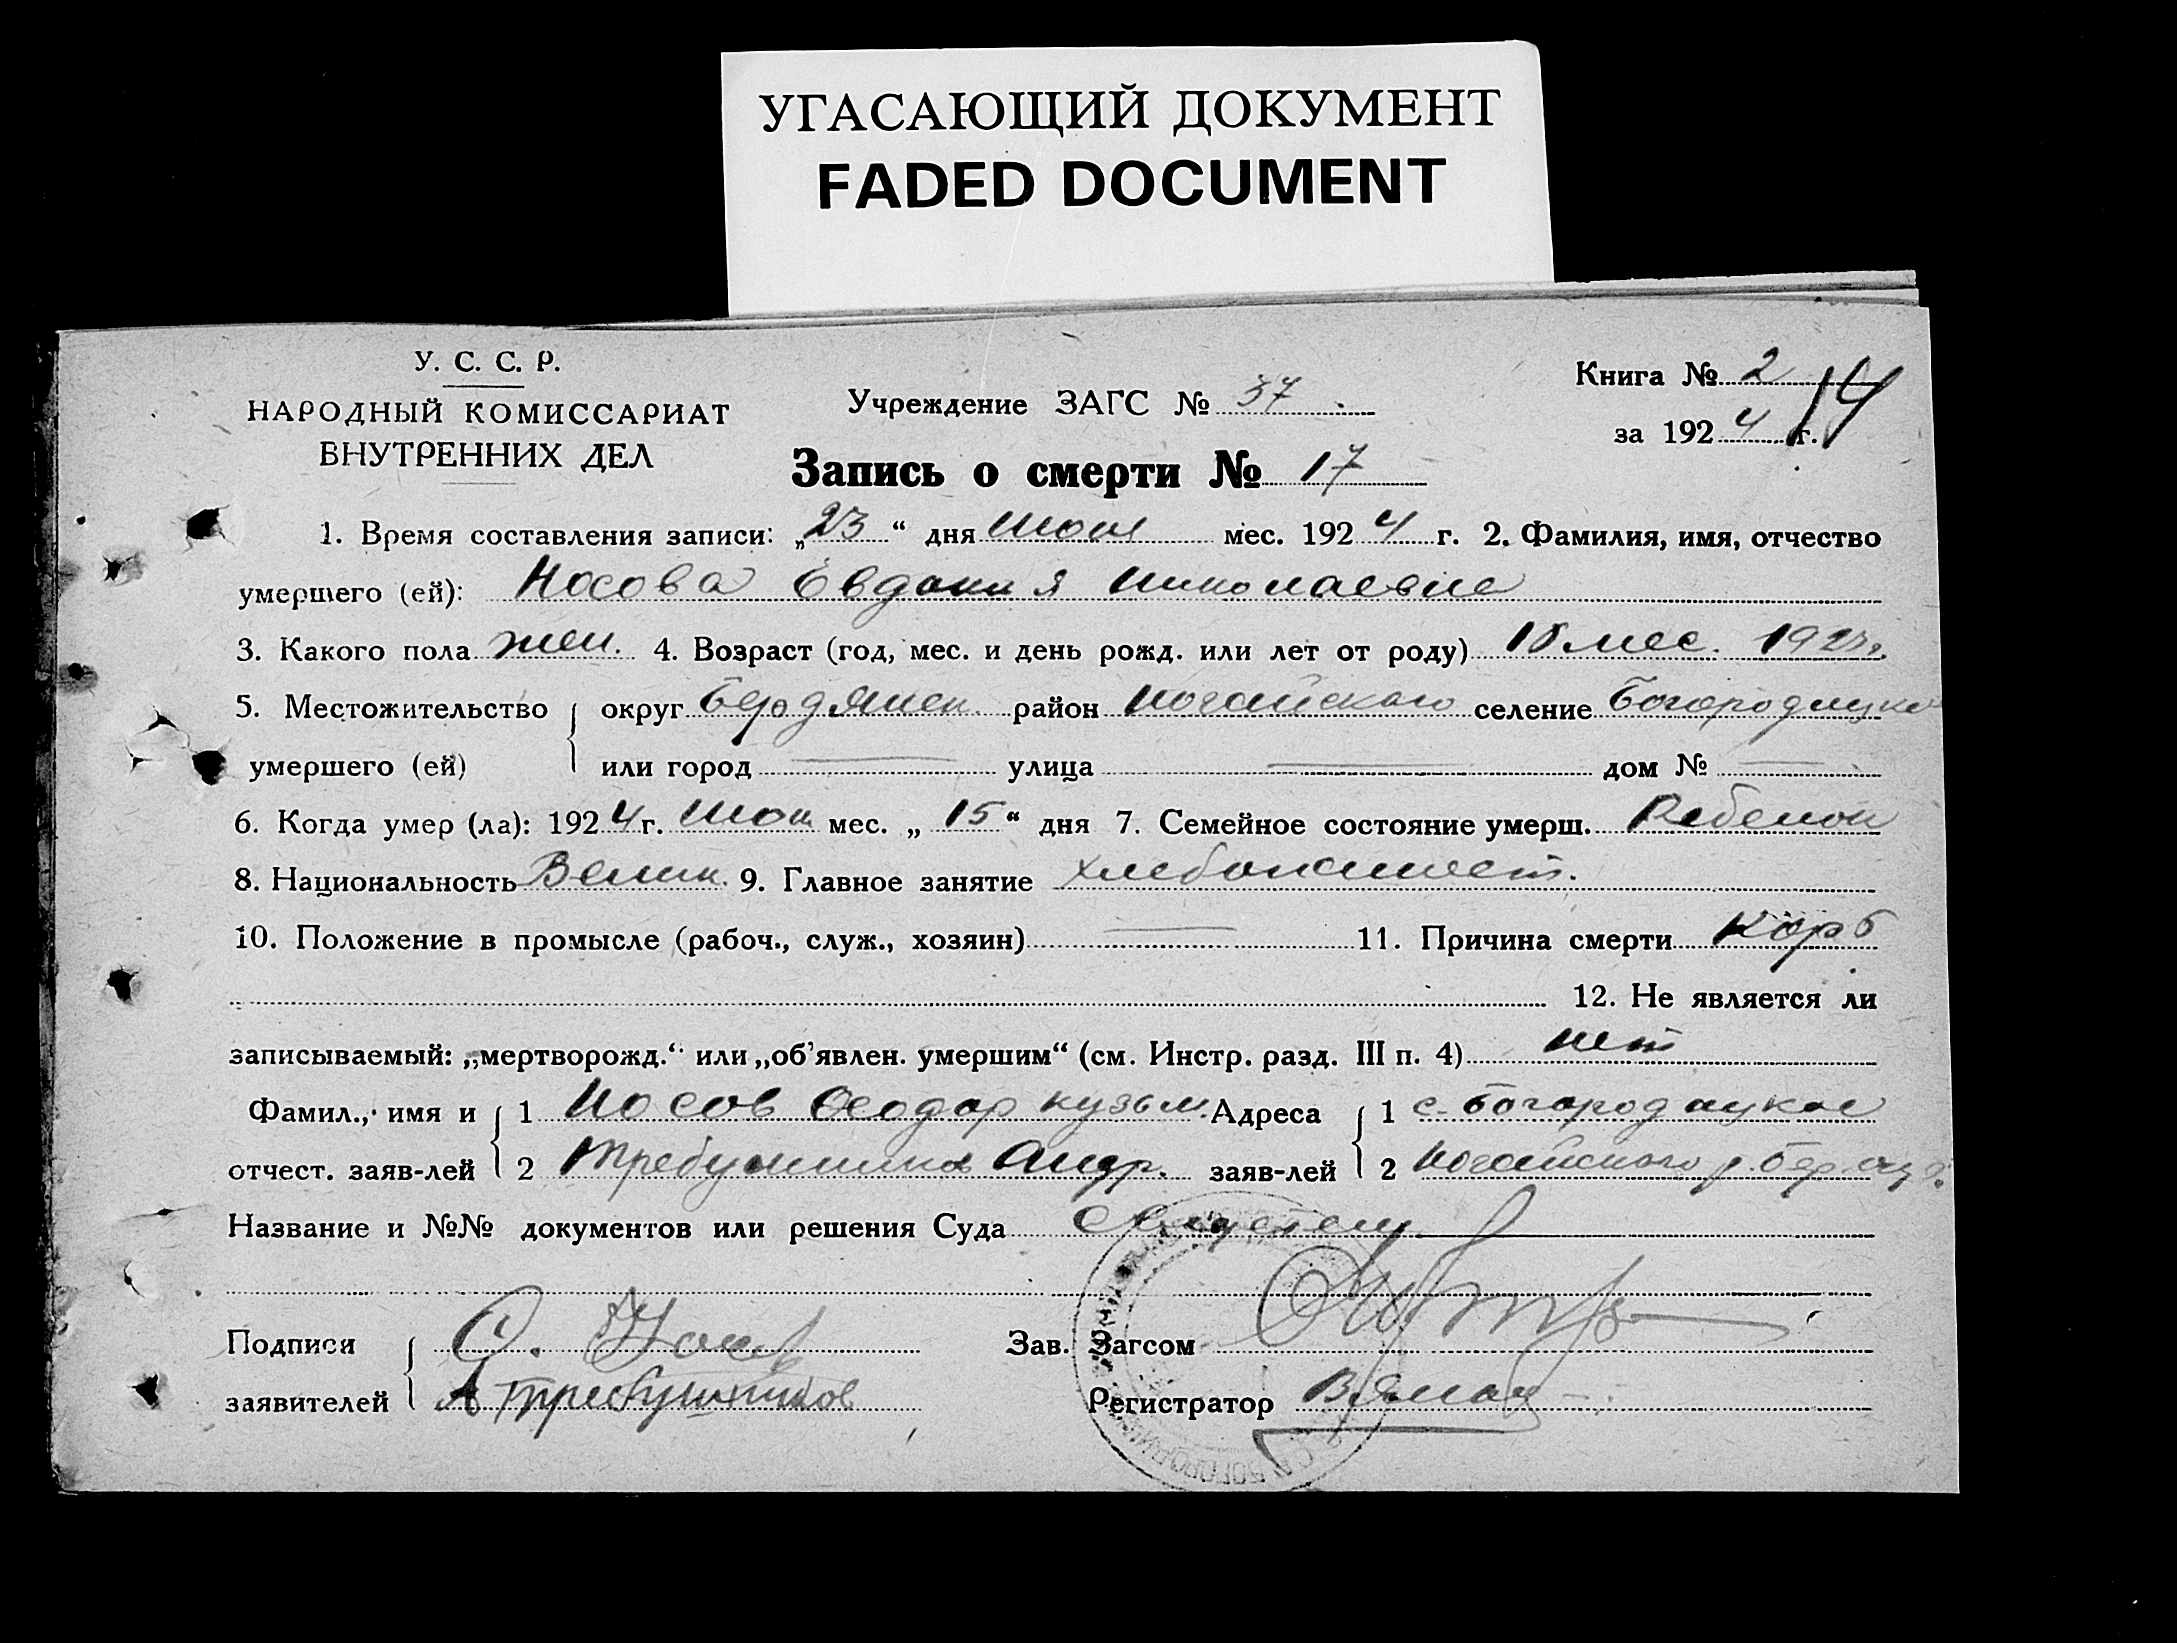 УГАСАЮЩИЙ ДОКУМЕНТ
FADED DOCUMENT
У. С. С. Р.
НАРОДНЫЙ КОМИССАРИАТ
ВНУТРЕННИХ ДЕЛ
Учреждение ЗАГС № 37
Книга № 2
за 1924 г. 14
Запись о смерти № 17
1. Время составления записи: „23“ дня Июня мес. 1924 г. 2. Фамилия, имя, отчество
умершего (ей): Носова Евдокия Николаевне
3. Какого пола жен. 4. Возраст (год, мес. и день рожд. или лет от роду) мес. 192
5. Местожительство округ Бердянск. район Ногайского селение Богородицко
умершего (ей) или город улица дом №
6. Когда умер (ла): 1924 г. Июн мес. „15“ дня 7. Семейное состояние умерш. Ребенок
8. Национальность Велик. 9. Главное занятие хлебопашест.
10. Положение в промысле (рабоч., служ., хозяин) 11. Причина смерти Корь
12. Не является ли
записываемый: „мертворожд.“ или „об’явлен. умершим“ (см. Инстр. разд. III п. 4) нет
Фамил., имя и 1 Носов Феодор Кузьм. Адреса 1 с. Богородицкое
отчест. заяв-лей 2 Требушников Андр. заяв-лей 2 Ногайского р. Бер.
Название и №№ документов или решения Суда
Подписи Ф. Носов Зав. Загсом
заявителей А Требушников Регистратор